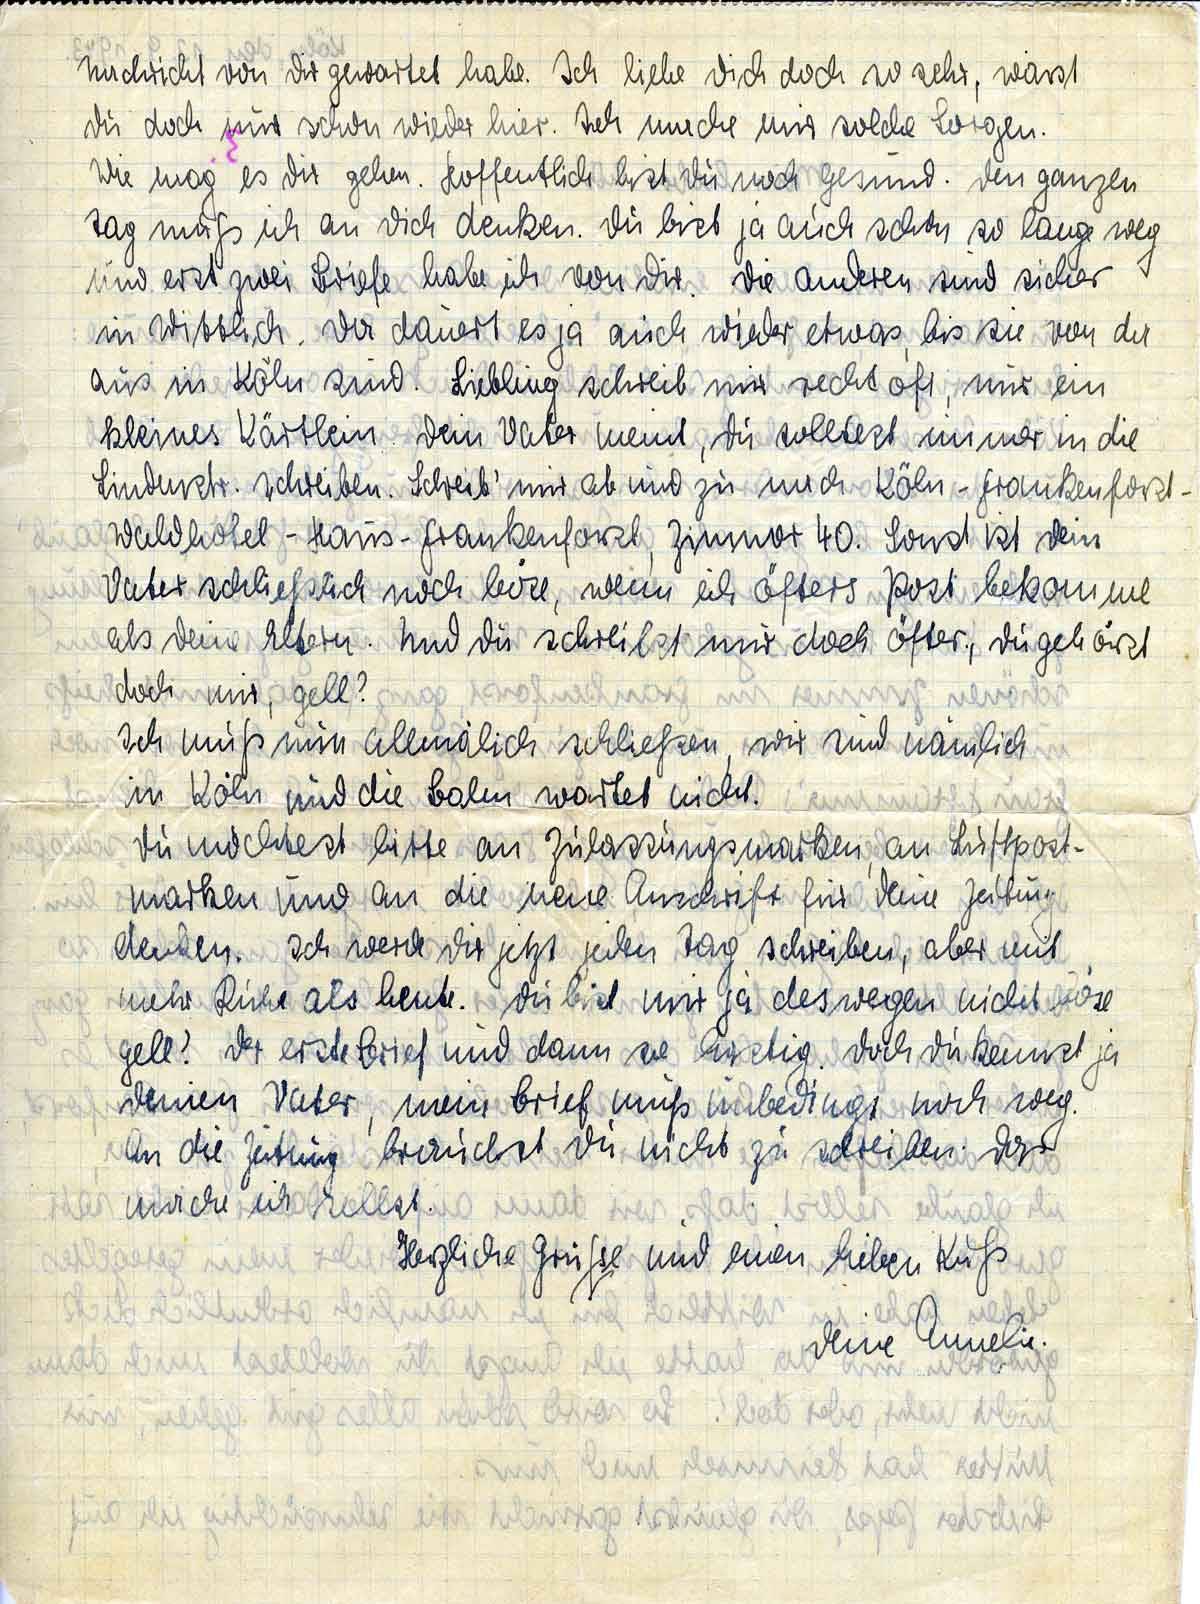 Nachricht von dir gewartet habe. Ich liebe dich doch so sehr, wärst
du doch nur schon wieder hier. Ich mache mir solche Sorgen.
Wie mag es dir gehen. Hoffentlich bist du noch gesund. Den ganzen
Tag muß ich an dich denken. Du bist ja auch schon so lange weg
und erst zwei Briefe habe ich von dir. Die anderen sind sicher
in Wittlich. Da dauert es ja auch wieder etwas, bis sie von da
aus in Köln sind. Liebling schreib mir recht oft, nur ein
kleines Kärtlein. Dein Vater meint, du solltest immer in die
Lindenstr. schreiben. Schreib' mir ab und zu nach Köln-Frankenforst-
Waldhotel-Haus-Frankenforst, Zimmer 40. Sonst ist dein
Vater schließlich noch böse, wenn ich öfters Post bekomme
als deine Eltern. Und du schreibst mir doch öfter, du gehörst
doch mir, gell?
Ich muß nun allmälich schließen, wir sind nämlich
in Köln und die Bahn wartet nicht.
Du möchtest bitte an Zulassungsmarken, an Luftpost-
marken und an die neue Anschrift für deine Zeitung
denken. Ich werde dir jetzt jeden Tag schreiben, aber mit
mehr Ruhe als heute. Du bist mir ja deswegen nicht böse
gell? Der erste Brief und dann so hastig. Doch du kennst ja
deinen Vater, mein Brief muß unbedingt noch weg.
An die Zeitung brauchst du nicht zu schreiben. Das
mache ich selbst.
Herzliche Grüße und einen lieben Kuß
deine Annelie.